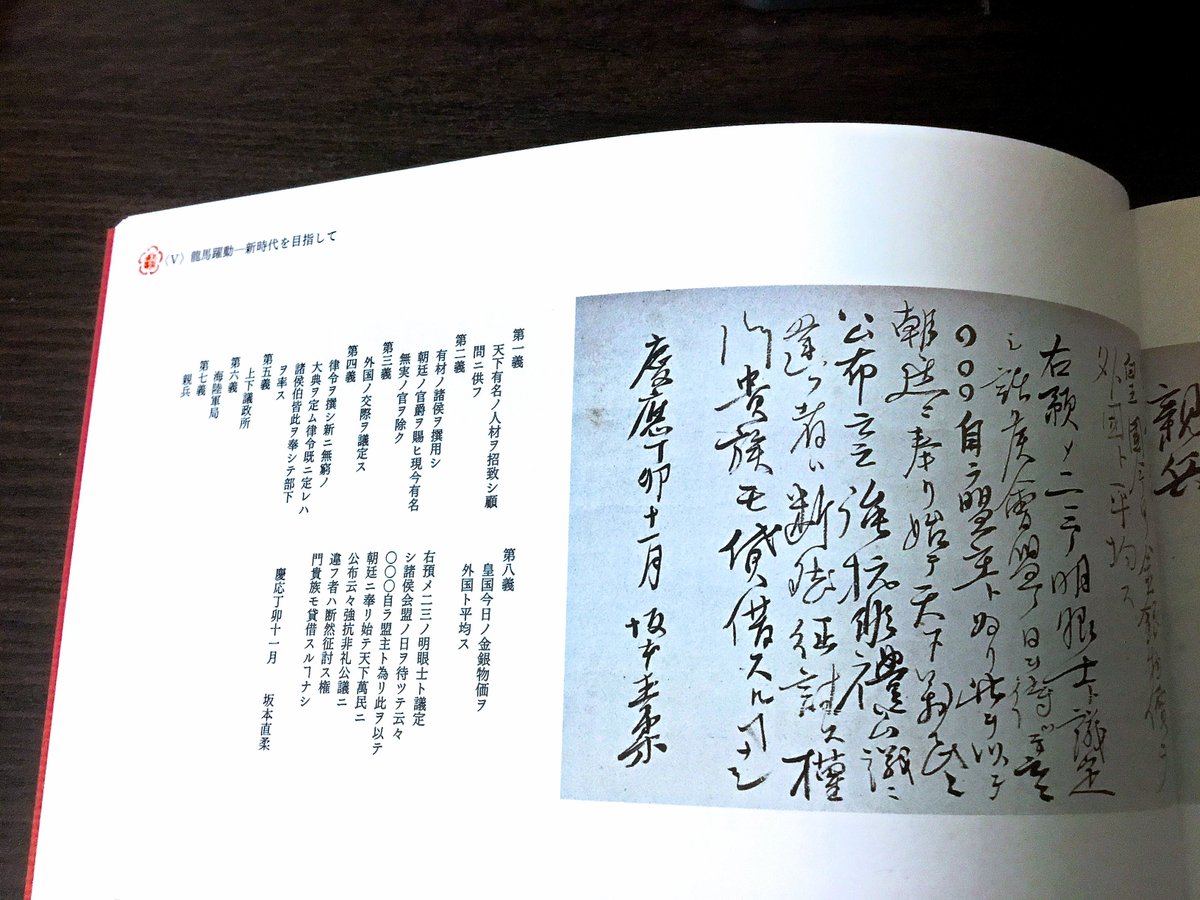 〈V〉龍馬躍動―新時代を目指して
第一義
天下有名ノ人材ヲ招致シ顧
問ニ供フ
第二義
有材ノ諸侯ヲ撰用シ
朝廷ノ官爵ヲ賜ヒ現今有名
無実ノ官ヲ除ク
第三義
外国ノ交際ヲ議定ス
第四義
律令ヲ撰シ新ニ無窮ノ
大典ヲ定ム律令既ニ定レハ
諸侯伯皆此ヲ奉シテ部下
ヲ率ス
第五義
上下議政所
第六義
海陸軍局
第七義
親兵
第八義
皇国今日ノ金銀物価ヲ
外国ト平均ス
右預メ二三ノ明眼士ト議定
シ諸侯会盟ノ日ヲ待ツテ云々
〇〇〇自ラ盟主ト為リ此ヲ以テ
朝廷ニ奉リ始テ天下萬民ニ
公布云々強抗非礼公議ニ
違フ者ハ断然征討ス権
門貴族モ貸借スルヿナシ
慶応丁卯十一月 坂本直柔
親兵
皇国今日ノ金銀物価ヲ
外国ト平均ス
右預メ二三ノ明眼士ト議定
シ諸侯会盟ノ日ヲ待ツテ云々
〇〇〇自ラ盟主ト為リ此ヲ以テ
朝廷ニ奉リ始テ天下萬民ニ
公布云々強抗非礼公議ニ
違フ者ハ断然征討ス権
門貴族モ貸借スルヿナシ
慶應丁卯十一月 坂本直柔